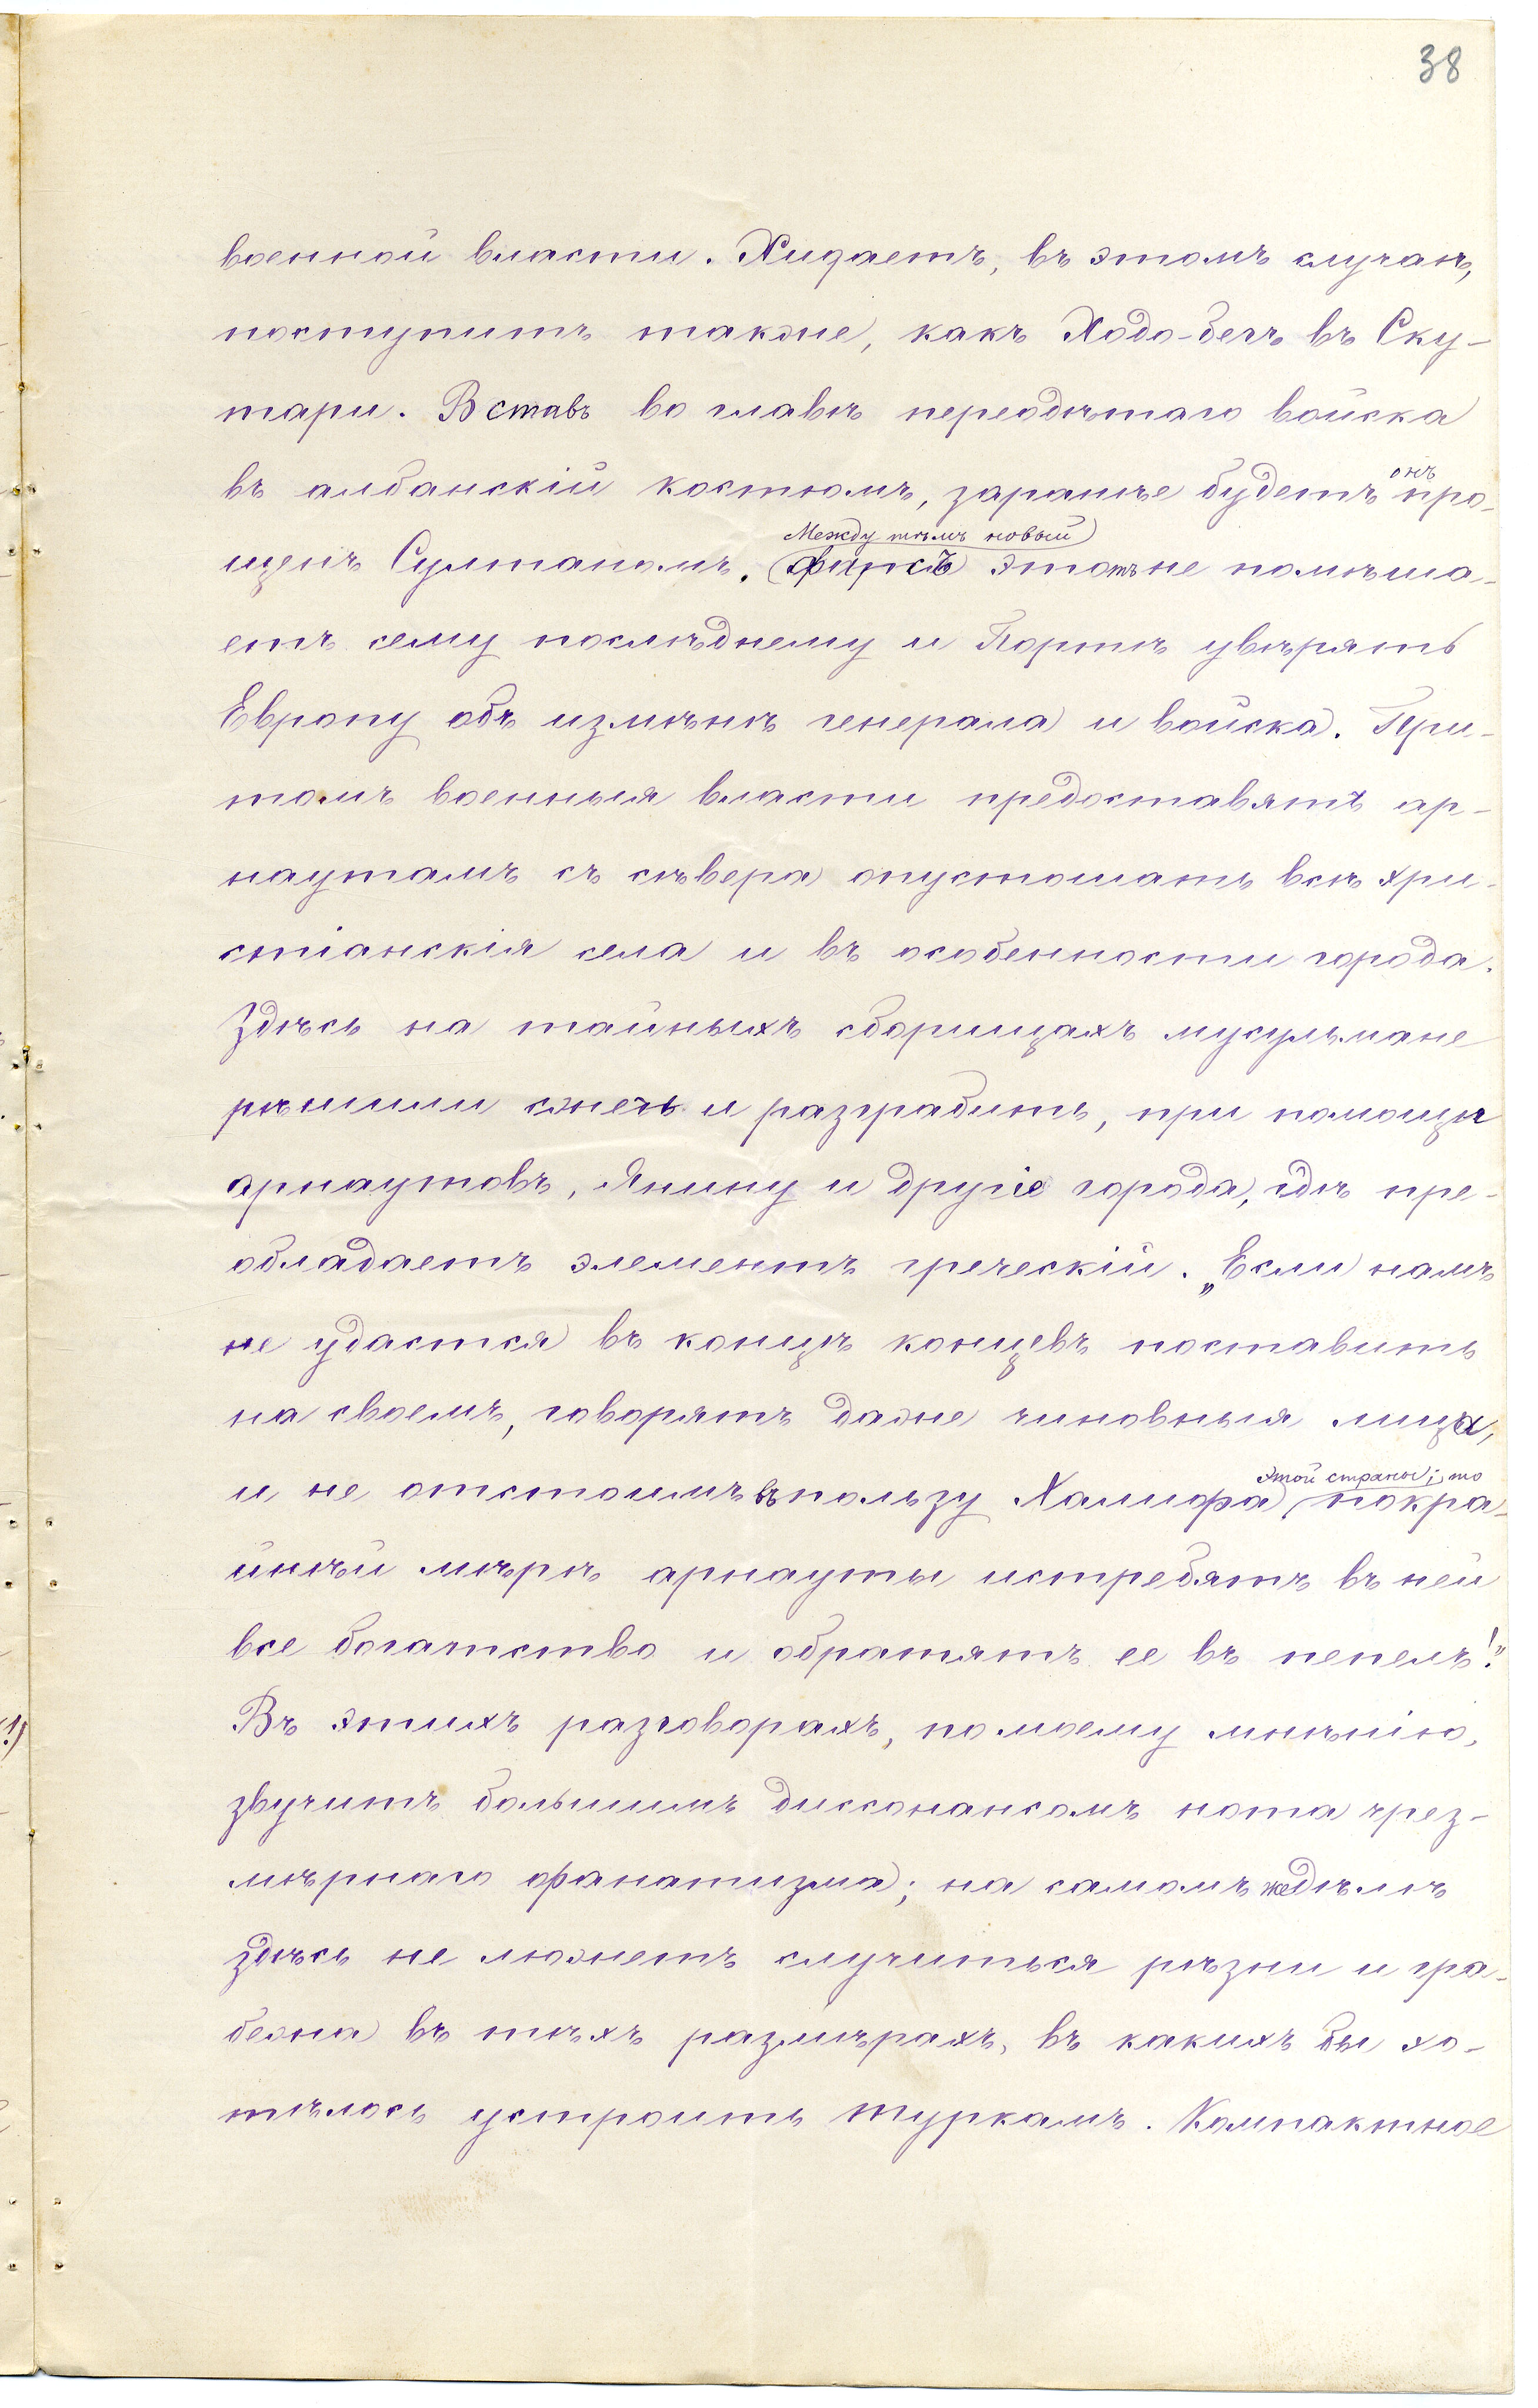 38
военной власти. Хидаетъ, въ этомъ случаѣ,
поступитъ также, какъ Ходо-бегъ въ Ску-
тари. Вставъ во главѣ переодѣтаго войска
въ албанскій костюмъ, заранѣе будетъ онъ про-
щенъ Султаномъ. Между тѣмъ новый фарсъ этотъ не помѣша-
етъ сему послѣднему и Портѣ увѣрять
Европу объ измѣнѣ генерала и войска. При-
томъ военныя власти предоставятъ ар-
наутамъ съ сѣвера опустошать всѣ хри-
стіанскія села и въ особенности города.
Здѣсь на тайныхъ сборищахъ мусульмане
рѣшили сжечь и разграбить, при помощи
арнаутовъ, Янину и другіе города, гдѣ пре-
обладаетъ элементъ греческій. „Если намъ
не удастся въ концѣ концевъ поставить
на своемъ, говорятъ даже чиновныя лица,
и не отстоимъ въ пользу Халифа этой страны; то покра-
йнѣй мѣрѣ арнауты истребятъ въ ней
все богатство и обратятъ ее въ пепелъ!“
Въ этихъ разговорахъ, по моему мнѣнію,
звучитъ большимъ диссонансомъ нота чрез-
мѣрнаго фанатизма; на самомъ же дѣлѣ
здѣсь не можетъ случиться рѣзни и гра-
бежа въ тѣхъ размѣрахъ, въ какихъ бы хо-
тѣлось устроить туркамъ. Компактное